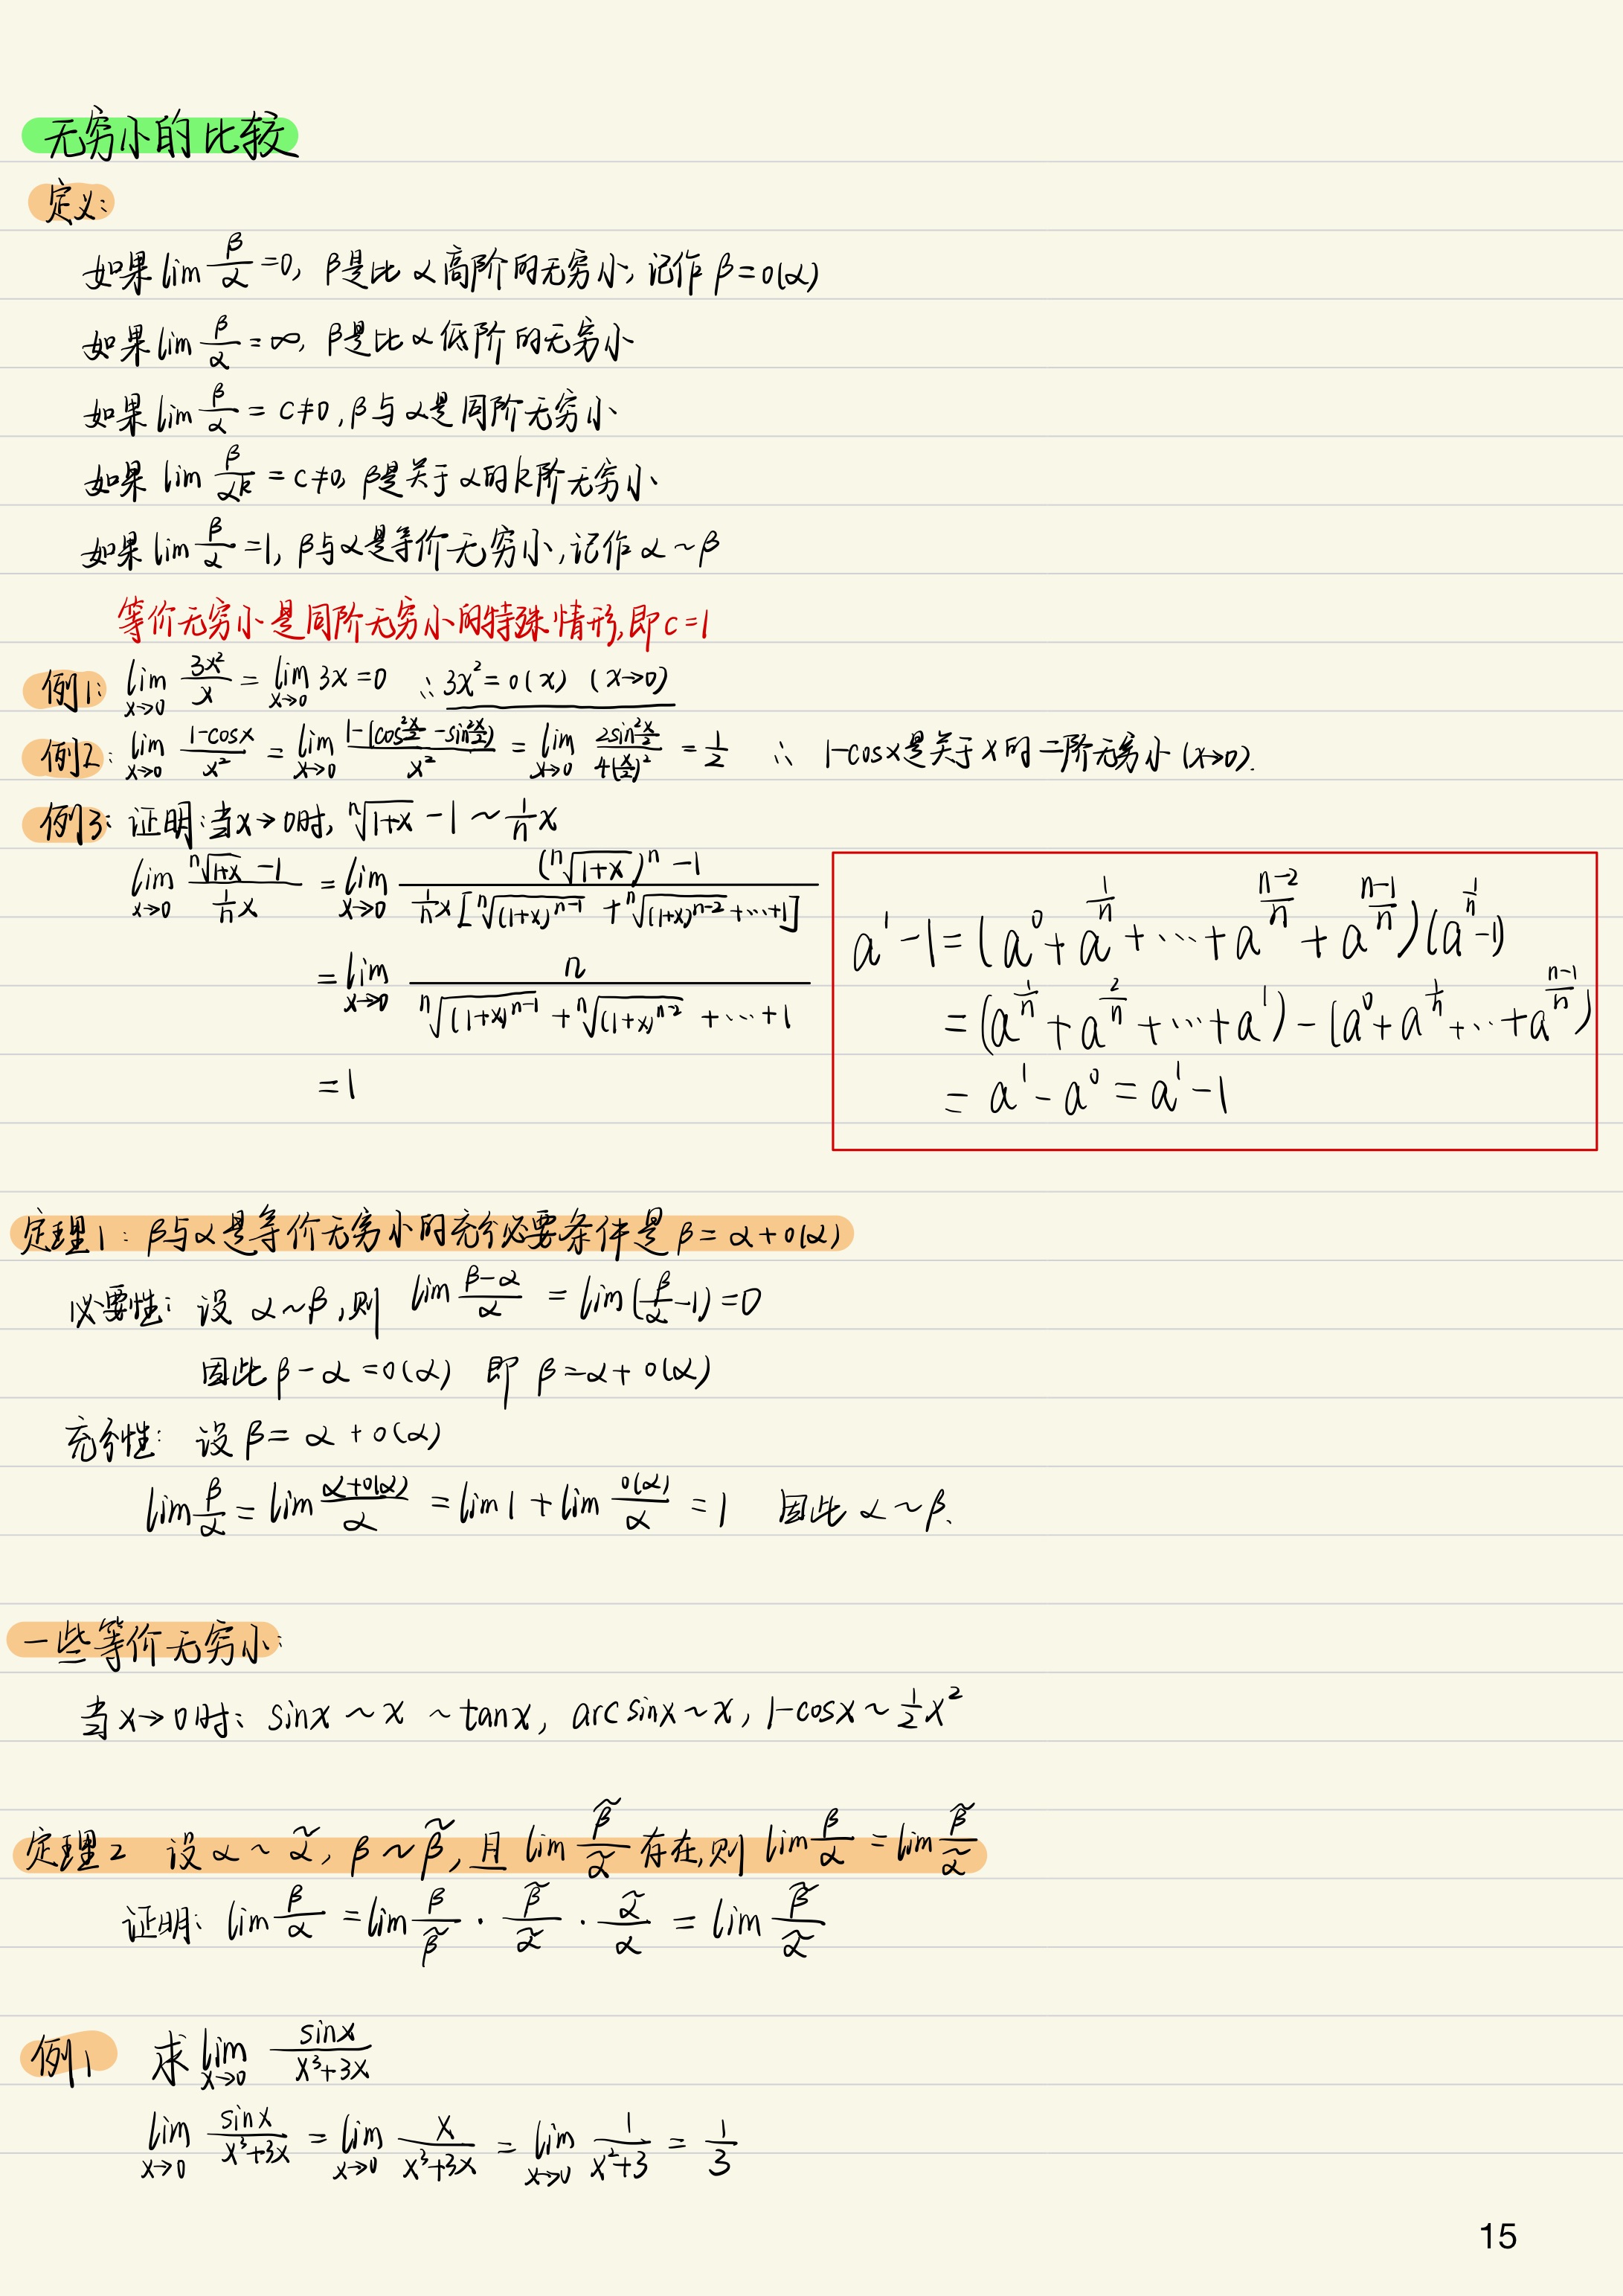 无穷小的比较
定义:
如果 lim β/α =0, β是比 α 高阶的无穷小, 记作 β=o(α)
如果 lim β/α = ∞, β是比 α 低阶的无穷小
如果 lim β/α = c≠0, β与 α是同阶无穷小
如果 lim β/α^k = c≠0, β是关于 α的k阶无穷小
如果 lim β/α =1, β与α是等价无穷小, 记作 α ~ β
等价无穷小是同阶无穷小的特殊情形, 即 c=1
例1: lim_{x→0} 3x²/x = lim_{x→0} 3x = 0 ∴ 3x² = o(x) (x→0)
例2: lim_{x→0} (1-cosx)/x² = lim_{x→0} (1-(cos²x/2 - sin²x/2))/x² = lim_{x→0} (2sin²x/2)/(4(x/2)²) = 1/2 ∴ 1-cosx是关于x的二阶无穷小 (x→0).
例3: 证明: 当x→0时, ⁿ√(1+x) - 1 ~ 1/n x
lim_{x→0} (ⁿ√(1+x) - 1)/(1/n x) = lim_{x→0} ((ⁿ√(1+x))ⁿ - 1)/(1/n x[ⁿ√((1+x)^{n-1}) + ⁿ√((1+x)^{n-2}) + ⋯ + 1])
= lim_{x→0} n/(ⁿ√((1+x)^{n-1}) + ⁿ√((1+x)^{n-2}) + ⋯ + 1)
= 1
a¹ - 1 = (a⁰ + a^{1/n} + ⋯ + a^{(n-2)/n} + a^{(n-1)/n})(a^{1/n} - 1)
= (a^{1/n} + a^{2/n} + ⋯ + a¹) - (a⁰ + a^{1/n} + ⋯ + a^{(n-1)/n})
= a¹ - a⁰ = a¹ - 1
定理1: β与α是等价无穷小的充分必要条件是 β = α + o(α)
必要性: 设 α ~ β, 则 lim (β-α)/α = lim (β/α - 1) = 0
因此 β - α = o(α) 即 β = α + o(α)
充分性: 设 β = α + o(α)
lim β/α = lim (α+o(α))/α = lim 1 + lim o(α)/α = 1 因此 α ~ β.
一些等价无穷小:
当 x→0时: sinx ~ x ~ tanx, arcsinx ~ x, 1-cosx ~ 1/2 x²
定理2 设 α ~ α̃, β ~ β̃, 且 lim β̃/α̃ 存在, 则 lim β/α = lim β̃/α̃
证明: lim β/α = lim β/β̃ · β̃/α̃ · α̃/α = lim β̃/α̃
例1 求 lim_{x→0} sinx/(x³+3x)
lim_{x→0} sinx/(x³+3x) = lim_{x→0} x/(x³+3x) = lim_{x→0} 1/(x²+3) = 1/3
15